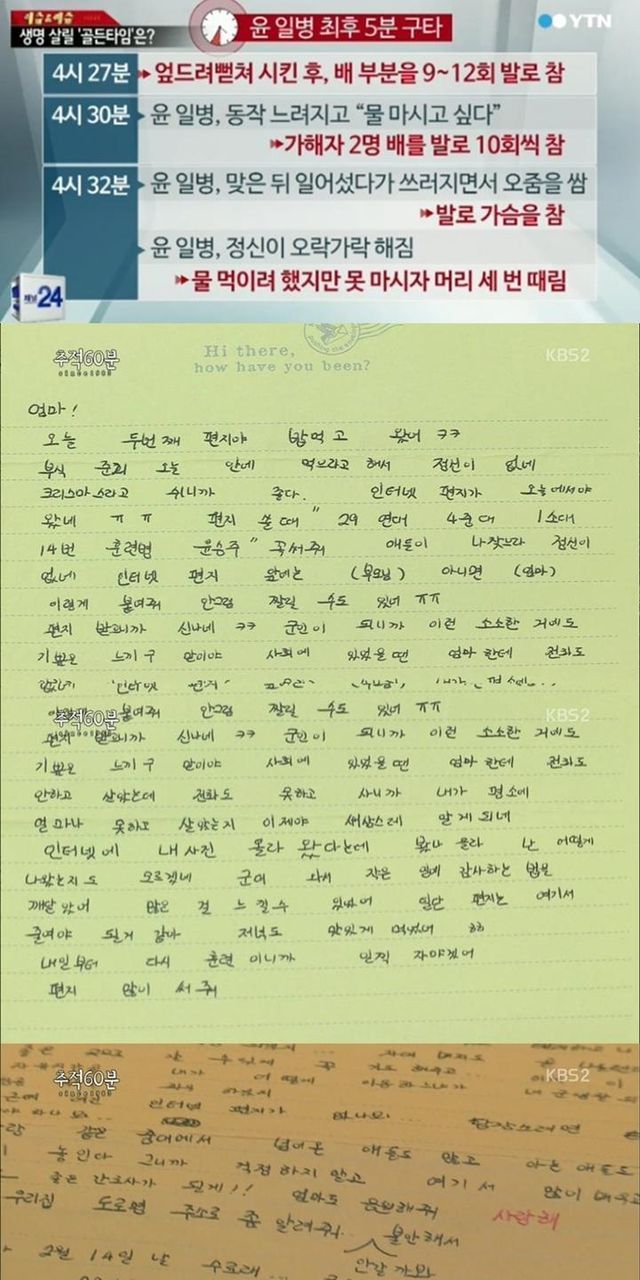 생명 살릴 '골든타임'은?
윤 일병 최후 5분 구타
YTN
4시 27분 엎드려뻗쳐 시킨 후, 배 부분을 9~12회 발로 참
4시 30분 윤 일병, 동작 느려지고 "물 마시고 싶다"
가해자 2명 배를 발로 10회씩 참
4시 32분 윤 일병, 맞은 뒤 일어섰다가 쓰러지면서 오줌을 쌈
발로 가슴을 참
윤 일병, 정신이 오락가락 해짐
물 먹이려 했지만 못 마시자 머리 세 번 때림
24
추적60분
since1983
KBS2
Hi there,
how have you been?
엄마!
오늘 두번째 편지야 밥먹고 왔어 ㅋㅋ
부식 준히 오늘 안에 먹으라고 해서 정신이 없네
크리스마스라고 쉬니까 좋다. 인터넷 편지가 오늘에서야
왔네 ㅠㅠ 편지 쓸 때 "29 연대 4중대 1소대
14번 훈련병 윤승주" 꼭써줘 애들이 나찾느라 정신이
없네 인터넷 편지 앞에는 (부모님) 아니면 (엄마)
이렇게 붙여줘 안그럼 짤릴 수도 있어 ㅠㅠ
편지 받으니까 신나네 ㅋㅋ 군인이 되니까 이런 소소한 거에도
기쁨은 느끼구 말이야 사회에 있었을 땐 엄마한테 전화도
추적60분
KBS2
붙여줘 안그럼 짤릴 수도 있어 ㅠㅠ
편지 받으니까 신나네 ㅋㅋ 군인이 되니까 이런 소소한 거에도
기쁨은 느끼구 말이야 사회에 있었을 땐 엄마한테 전화도
안하고 살았는데 전화도 못하고 사니까 내가 평소에
얼마나 못하고 살았는지 이제야 새삼스레 알게되네
인터넷에 내사진 올라 왔다는데 봤나 몰라 난 어떻게
나왔는지도 모르겠네 군대 와서 작은 일에 감사하는 법을
깨달았어 많은 걸 느낄수 있었어 일단 편지는 여기서
줄여야 될거 같아 저녁도 맛있게 먹었어 ㅎㅎ
내일부터 다시 훈련 이니까 일찍 자야겠어
편지 많이 써줘
추적60분
since1983
KBS2
인터넷 편지가
같은 중대에서 넘어온 애들도 많고 아는 애들도
놓인다 그니까 걱정하지 말고 여기서 많이 배우고
좋은 간호사가 될게!! 엄마도 응원해줘 사랑해
우리집 도로명 주소로 좀 알려줘.. 불안해서
2월 14일 날 수료래.. 안갈까봐